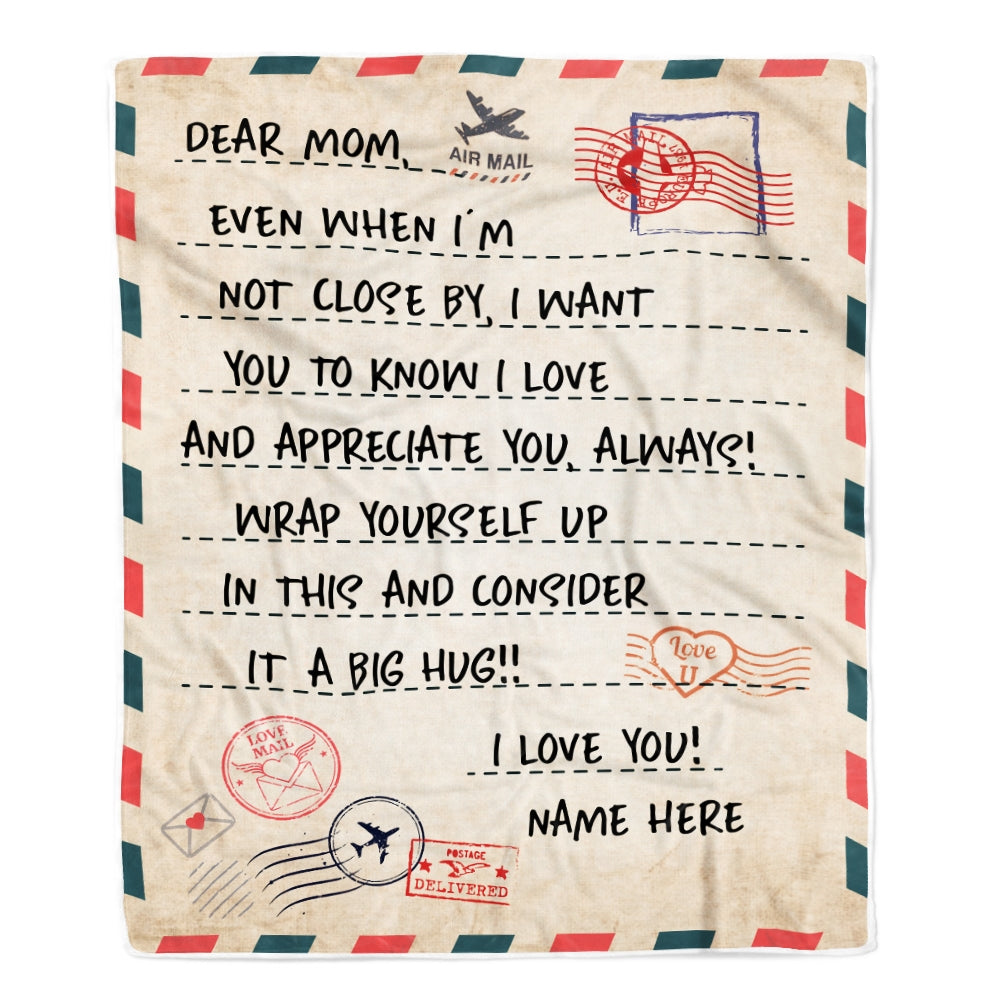 DEAR MOM,
AIR MAIL
EVEN WHEN I'M
NOT CLOSE BY, I WANT
YOU TO KNOW I LOVE
AND APPRECIATE YOU, ALWAYS!
WRAP YOURSELF UP
IN THIS AND CONSIDER
IT A BIG HUG!!
Love
U
LOVE
MAIL
I LOVE YOU!
NAME HERE
POSTAGE
DELIVERED